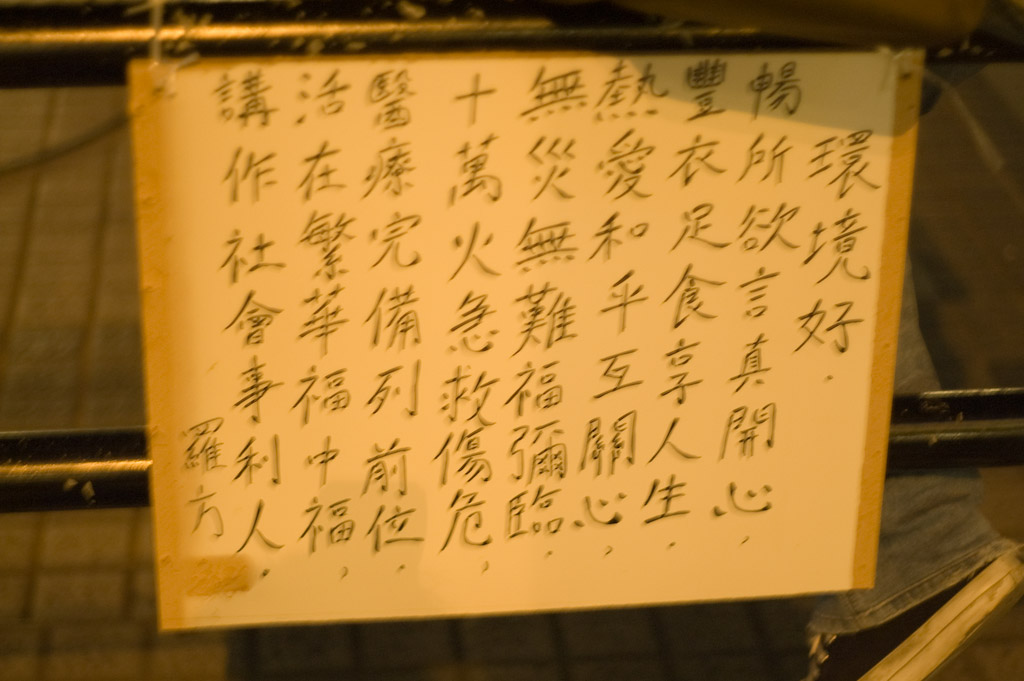 環境好．
暢所欲言真開心，
豐衣足食享人生．
熱愛和乎互關心，
無災無難福彌臨．
十萬火急救傷危，
醫療完備列前位．
活在繁華福中福，
講作社會事利人．
羅方